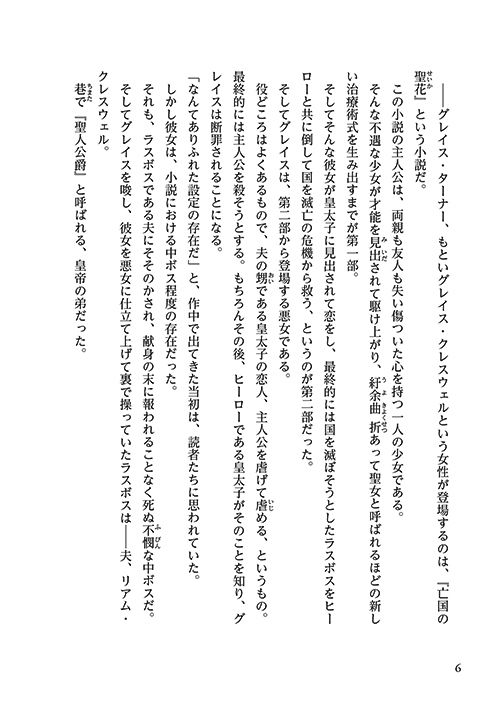 ――グレイス・ターナー、もといグレイス・クレスウェルという女性が登場するのは、『亡国の
聖花』という小説だ。
この小説の主人公は、両親も友人も失い傷ついた心を持つ一人の少女である。
そんな不遇な少女が才能を見出されて駆け上がり、紆余曲折あって聖女と呼ばれるほどの新し
い治療術式を生み出すまでが第一部。
そしてそんな彼女が皇太子に見出されて恋をし、最終的には国を滅ぼそうとしたラスボスをヒー
ローと共に倒して国を滅亡の危機から救う、というのが第二部だった。
そしてグレイスは、第二部から登場する悪女である。
役どころはよくあるもので、夫の甥である皇太子の恋人、主人公を虐げて虐める、というもの。
最終的には主人公を殺そうとする。もちろんその後、ヒーローである皇太子がそのことを知り、グ
レイスは断罪されることになる。
「なんてありふれた設定の存在だ」と、作中で出てきた当初は、読者たちに思われていた。
しかし彼女は、小説における中ボス程度の存在だった。
それも、ラスボスである夫にそそのかされ、献身の末に報われることなく死ぬ不憫な中ボスだ。
そしてグレイスを唆し、彼女を悪女に仕立て上げて裏で操っていたラスボスは――夫、リアム・
クレスウェル。
巷で『聖人公爵』と呼ばれる、皇帝の弟だった。
6